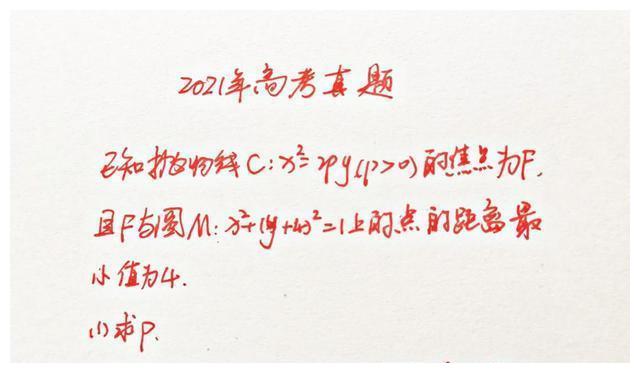 2021年高考真题
已知抛物线C:x²=2py(p>0)的焦点为F,
且F与圆M:x²+(y+4)²=1上的点的距离最
小值为4.
(1)求P.